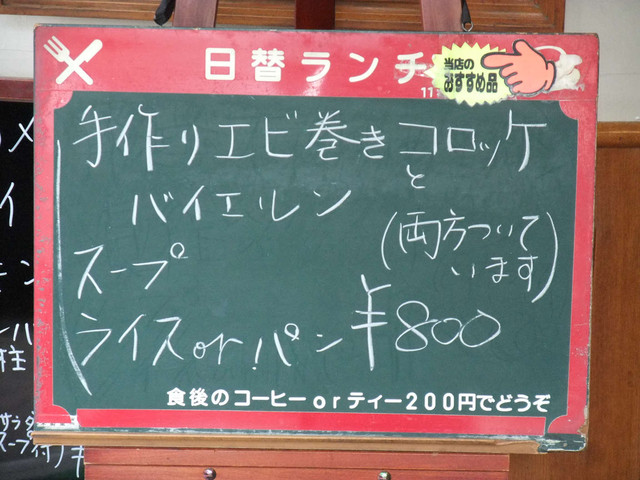 日替ランチ
当店の
おすすめ品
手作りエビ巻きコロッケ
と
バイエルン
(両方ついて
います)
スープ
ライスor パン ¥800
食後のコーヒーorティー200円でどうぞ